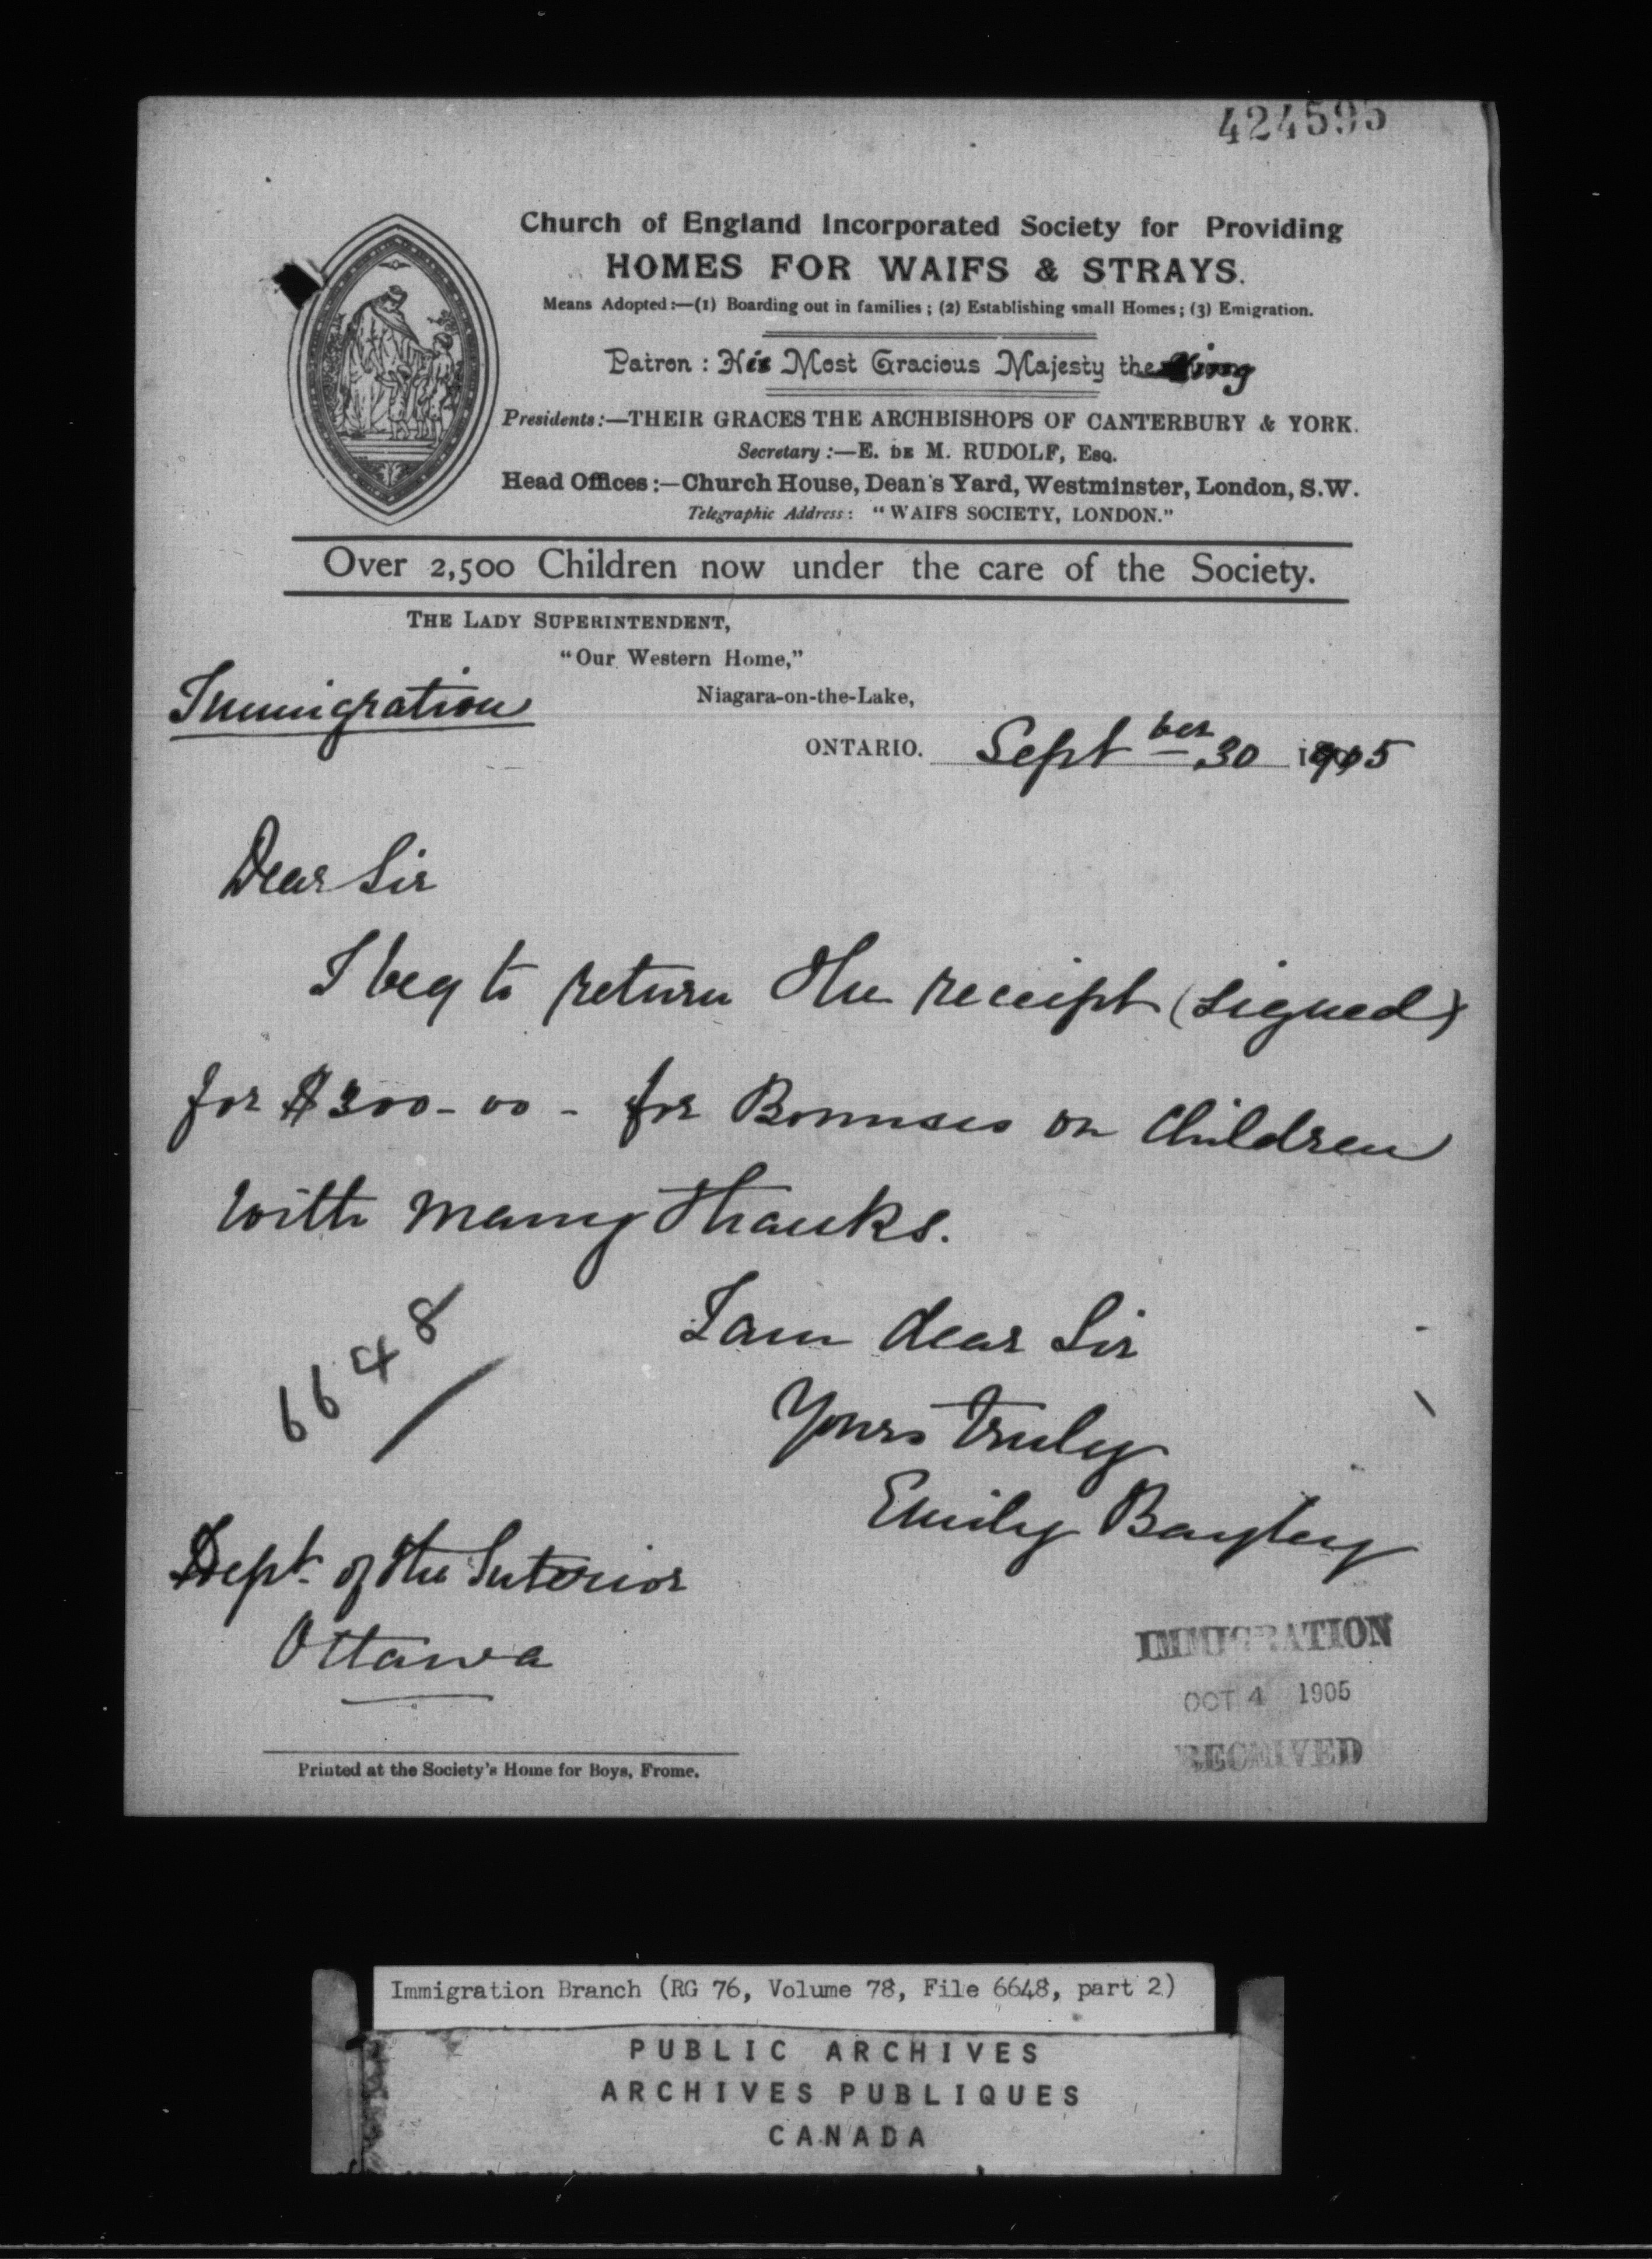 424595
Church of England Incorporated Society for Providing
HOMES FOR WAIFS & STRAYS.
Means Adopted:—(1) Boarding out in families; (2) Establishing small Homes; (3) Emigration.
Patron: His Most Gracious Majesty the King
Presidents:—THEIR GRACES THE ARCHBISHOPS OF CANTERBURY & YORK.
Secretary:—E. DE M. RUDOLF, ESQ.
Head Offices:—Church House, Dean's Yard, Westminster, London, S.W.
Telegraphic Address: "WAIFS SOCIETY, LONDON."
Over 2,500 Children now under the care of the Society.
THE LADY SUPERINTENDENT,
"Our Western Home,"
Immigration
Niagara-on-the-Lake,
ONTARIO. Septber 30 1905
Dear Sir
I beg to return the receipt (signed)
for $300-00 - for Bonuses on Children
with many thanks.
I am dear Sir
6648
Yours truly
Emily Bayley
Dept. of the Interior
Ottawa
IMMIGRATION
OCT 4 1905
RECEIVED
Printed at the Society's Home for Boys, Frome.
Immigration Branch (RG 76, Volume 78, File 6648, part 2)
PUBLIC ARCHIVES
ARCHIVES PUBLIQUES
CANADA